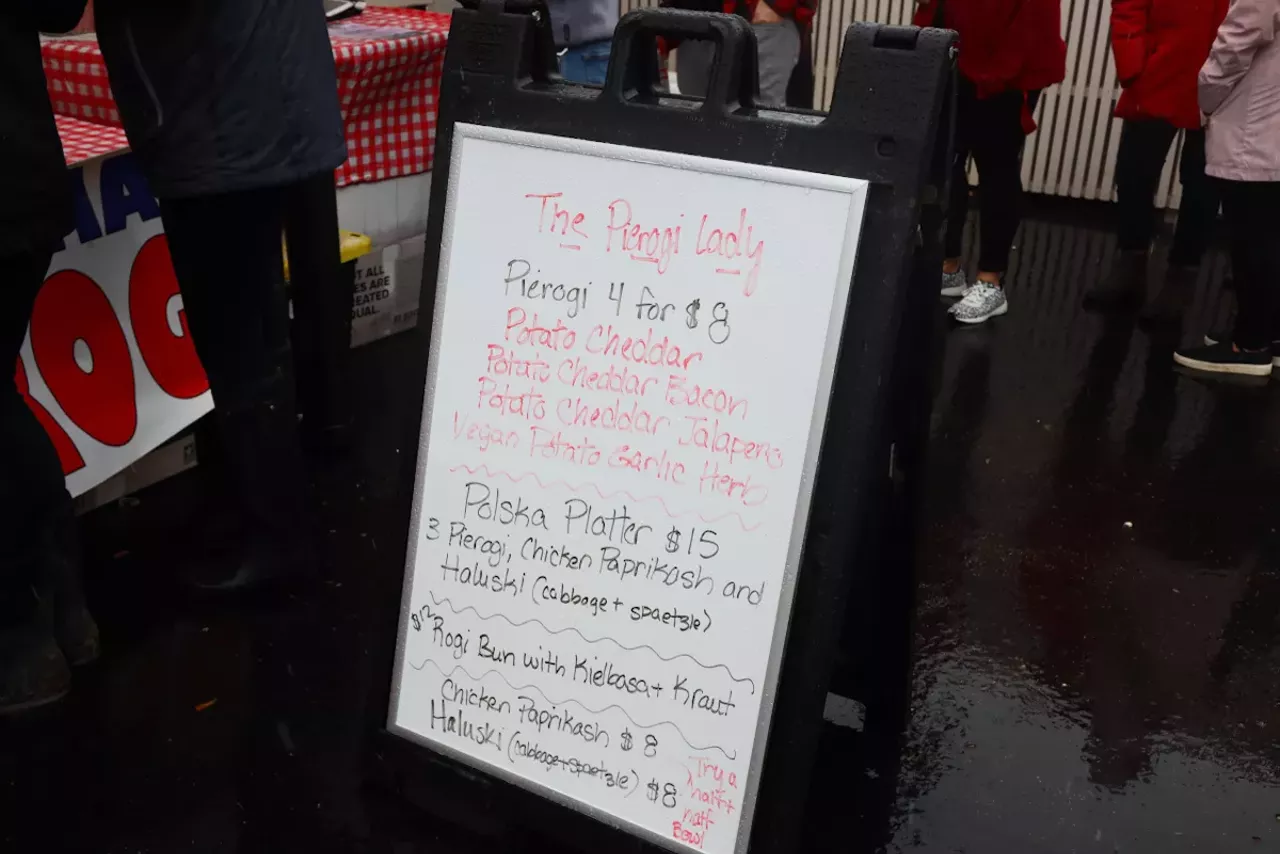 The Pierogi Lady
Pierogi 4 for $8
Potato Cheddar
Potato Cheddar Bacon
Potato Cheddar Jalapeno
Vegan Potato Garlic Herb
Polska Platter $15
3 Pierogi, Chicken Paprikash and
Haluski (cabbage + spaetzle)
$12 Rogi Bun with Kielbasa + Kraut
Chicken Paprikash $8
Haluski (cabbage + spaetzle) $8
Try a
half +
half
Bowl
MA
ROG
T ALL
ES ARE
EATED
QUAL.